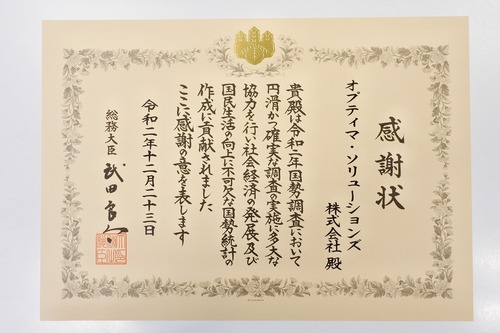 感謝状
オプティマ・ソリューションズ
株式会社 殿
貴殿は令和二年国勢調査において
円滑かつ確実な調査の実施に多大な
協力を行い社会経済の発展及び
国民生活の向上に不可欠な国勢統計の
作成に貢献されました
ここに感謝の意を表します
令和二年十二月二十三日
総務大臣 武田良太